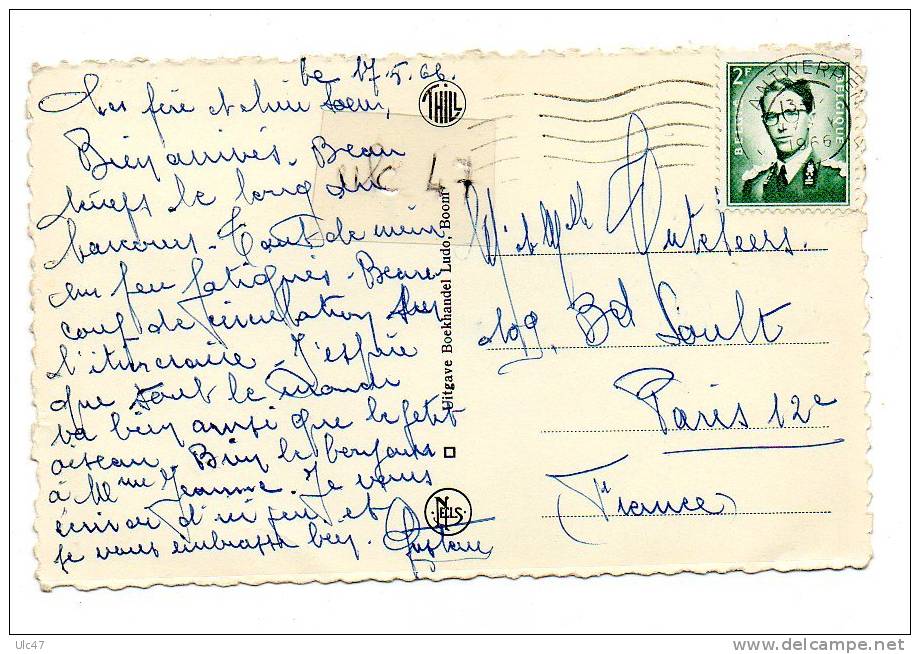 le 17.5.66.
frère et soeur,
Bien arrivés. Beau
temps le long du
parcours. Tout de même
un peu fatigués. Beau
coup de circulation sur
l'itinéraire. J'espère
que tout le monde
va bien ainsi que le petit
oiseau. Bien le bonjour
à Mme Jeanne. Je vous
écrirai d'ici peu et
je vous embrasse bien. Gustave
THILL
UlC 47
Uitgave Boekhandel Ludo, Boom
NELS
2F
BELGIQUE
ANTWERP
13
1966
M et Mlle
109, Bd Soult
Paris 12e
France
Ulc47
delcampe.net